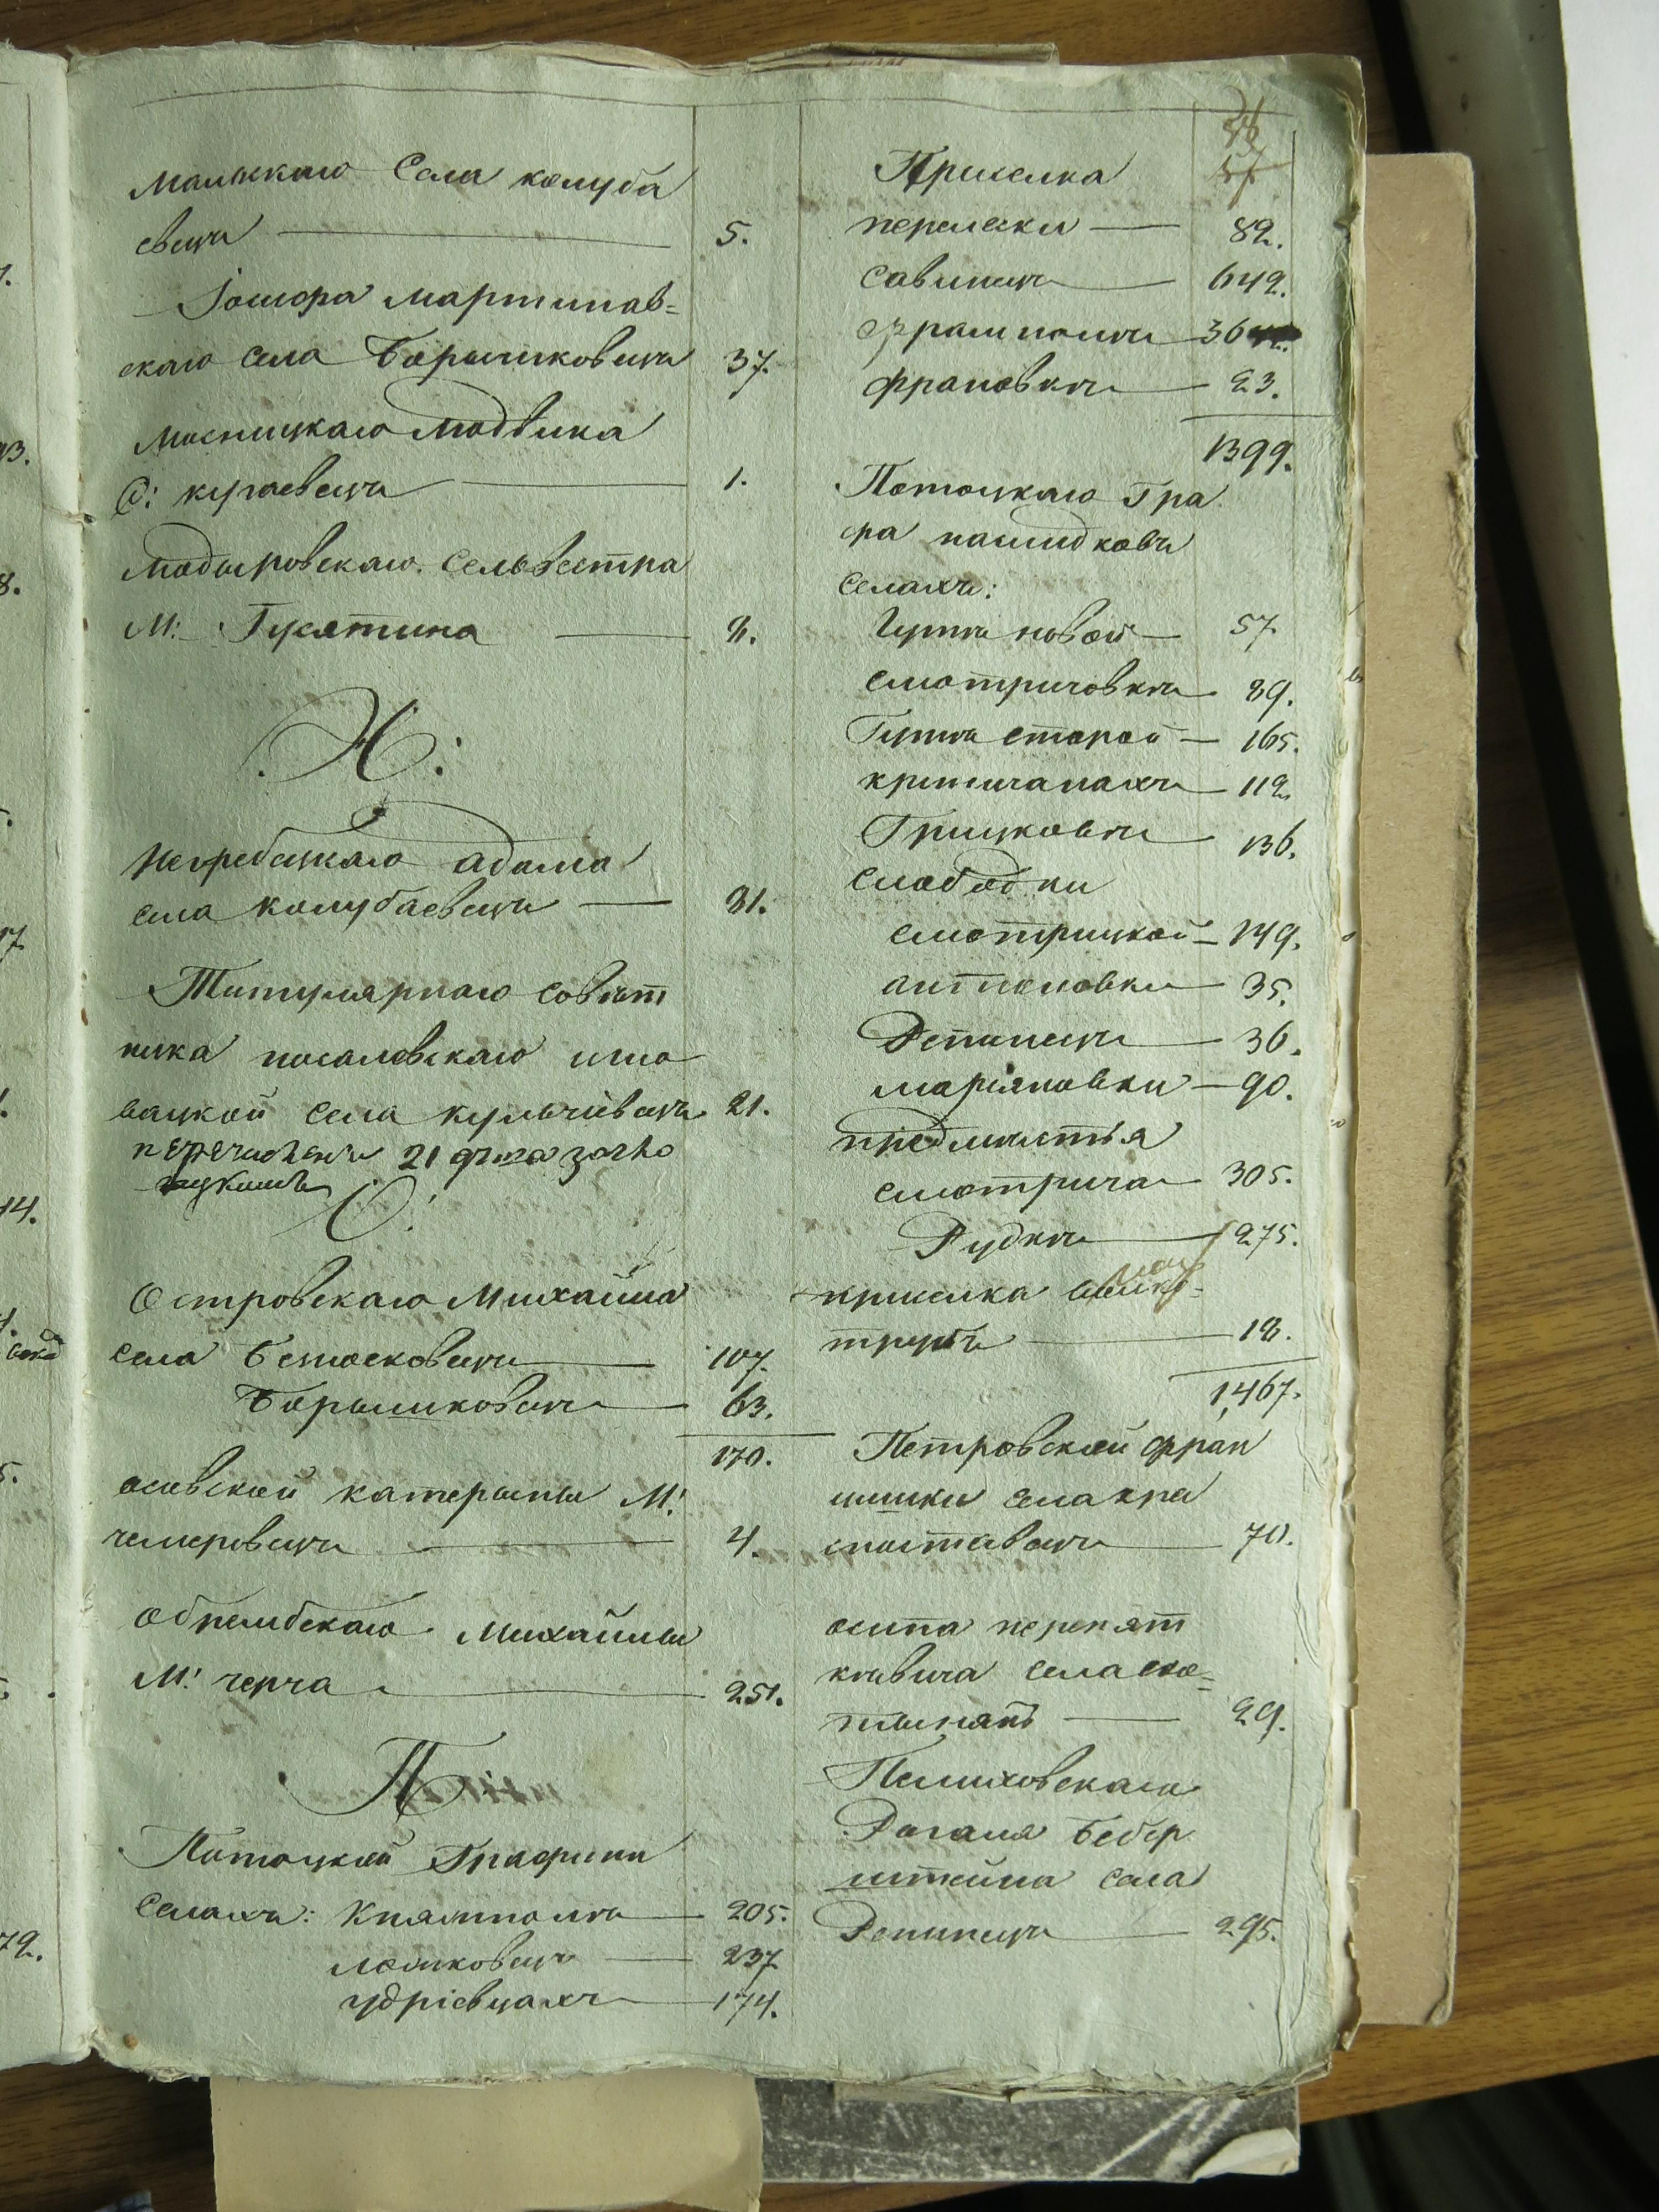 Мальскаго Села колуба
евецъ — 5.
Іосифа Мартинав=
скаго села Борышковецъ 37.
Мосницкаго Людвика
С: кугаевецъ — 1.
Модзыровскаго Сельвестра
М: Гусятина — 8.
Н:
Негребецкаго адама
села колубаевецъ — 31.
Титулярнаго совѣт
ника
вацкой села кульчіевецъ 21.
перечислены 21 душа за
О:
Островскаго Михайла
села Бемосковецъ — 107.
Борышковецъ — 63.
170.
осовской катерыны М:
чемеровецъ — 4.
обрембскаго Михайлы
М: черча — 251.
П
Потоцкой Графини
Селахъ: Княжполѣ — 205.
ляцковецъ — 237
удріевцахъ — 174.
Приселка
перелоски — 82.
савинецъ — 642.
франполи — 36
франовки — 23.
1399.
Потоцкаго Гра
фа наслѣдковъ
селахъ:
Гутѣ новой — 57.
смотричовки — 89.
Гутѣ старой — 165.
кришчанахъ — 112.
Грицковѣ — 136.
слободки
смотрицкой — 149.
антоновки — 35.
Репинецъ — 36.
маріяновки — 90.
предмѣстья
смотрича — 305.
Рудки — 275.
приселка
— 18.
1,467.
Петровской фран
цишки села кри
— 70.
осипа перепят
кевича села ско=
— 29.
Пелиховскаго
Рогаля Бебер
штейна села
Репинецъ — 295.